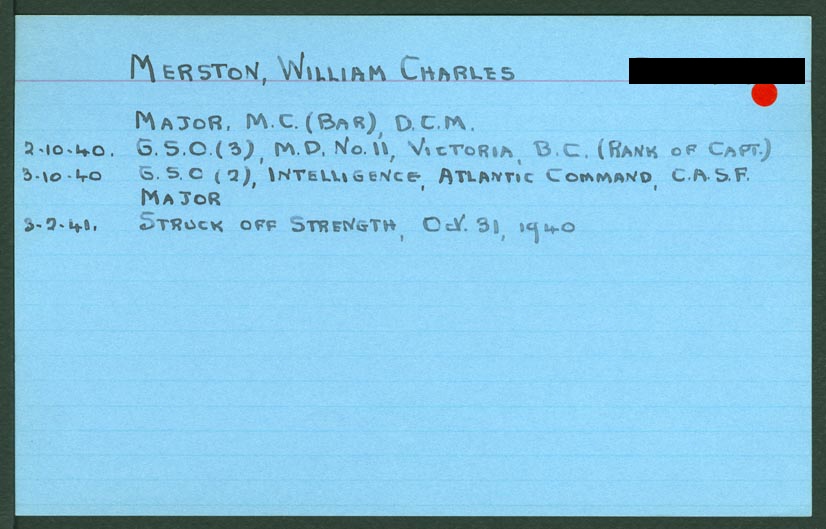 MERSTON, WILLIAM CHARLES
MAJOR, M.C. (BAR), D.C.M.
2-10-40. G.S.O.(3), M.D. No. 11, VICTORIA, B.C. (RANK OF CAPT.)
3-10-40 G.S.O (2), INTELLIGENCE, ATLANTIC COMMAND, C.A.S.F.
MAJOR
3-2-41. STRUCK OFF STRENGTH, Oct. 31, 1940